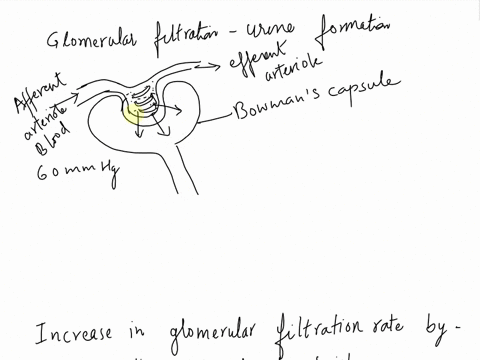 Glomerular filtration - urine formation
efferent
arteriole
Afferent
arteriole
Blood
Bowman's capsule
60 mm Hg
Increase in glomerular filtration rate by -